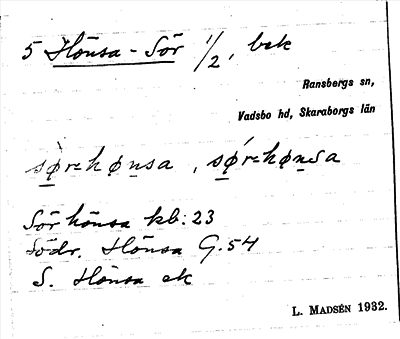 5 Hönsa - Sör 1/2, bek
Ransbergs sn,
Vadsbo hd, Skaraborgs län
sø̀r=hønsa, sǿr=hønsa
Sör hönsa kb: 23
Södr. Hönsa G. 54
S. Hönsa ek
L. MADSÉN 1932.